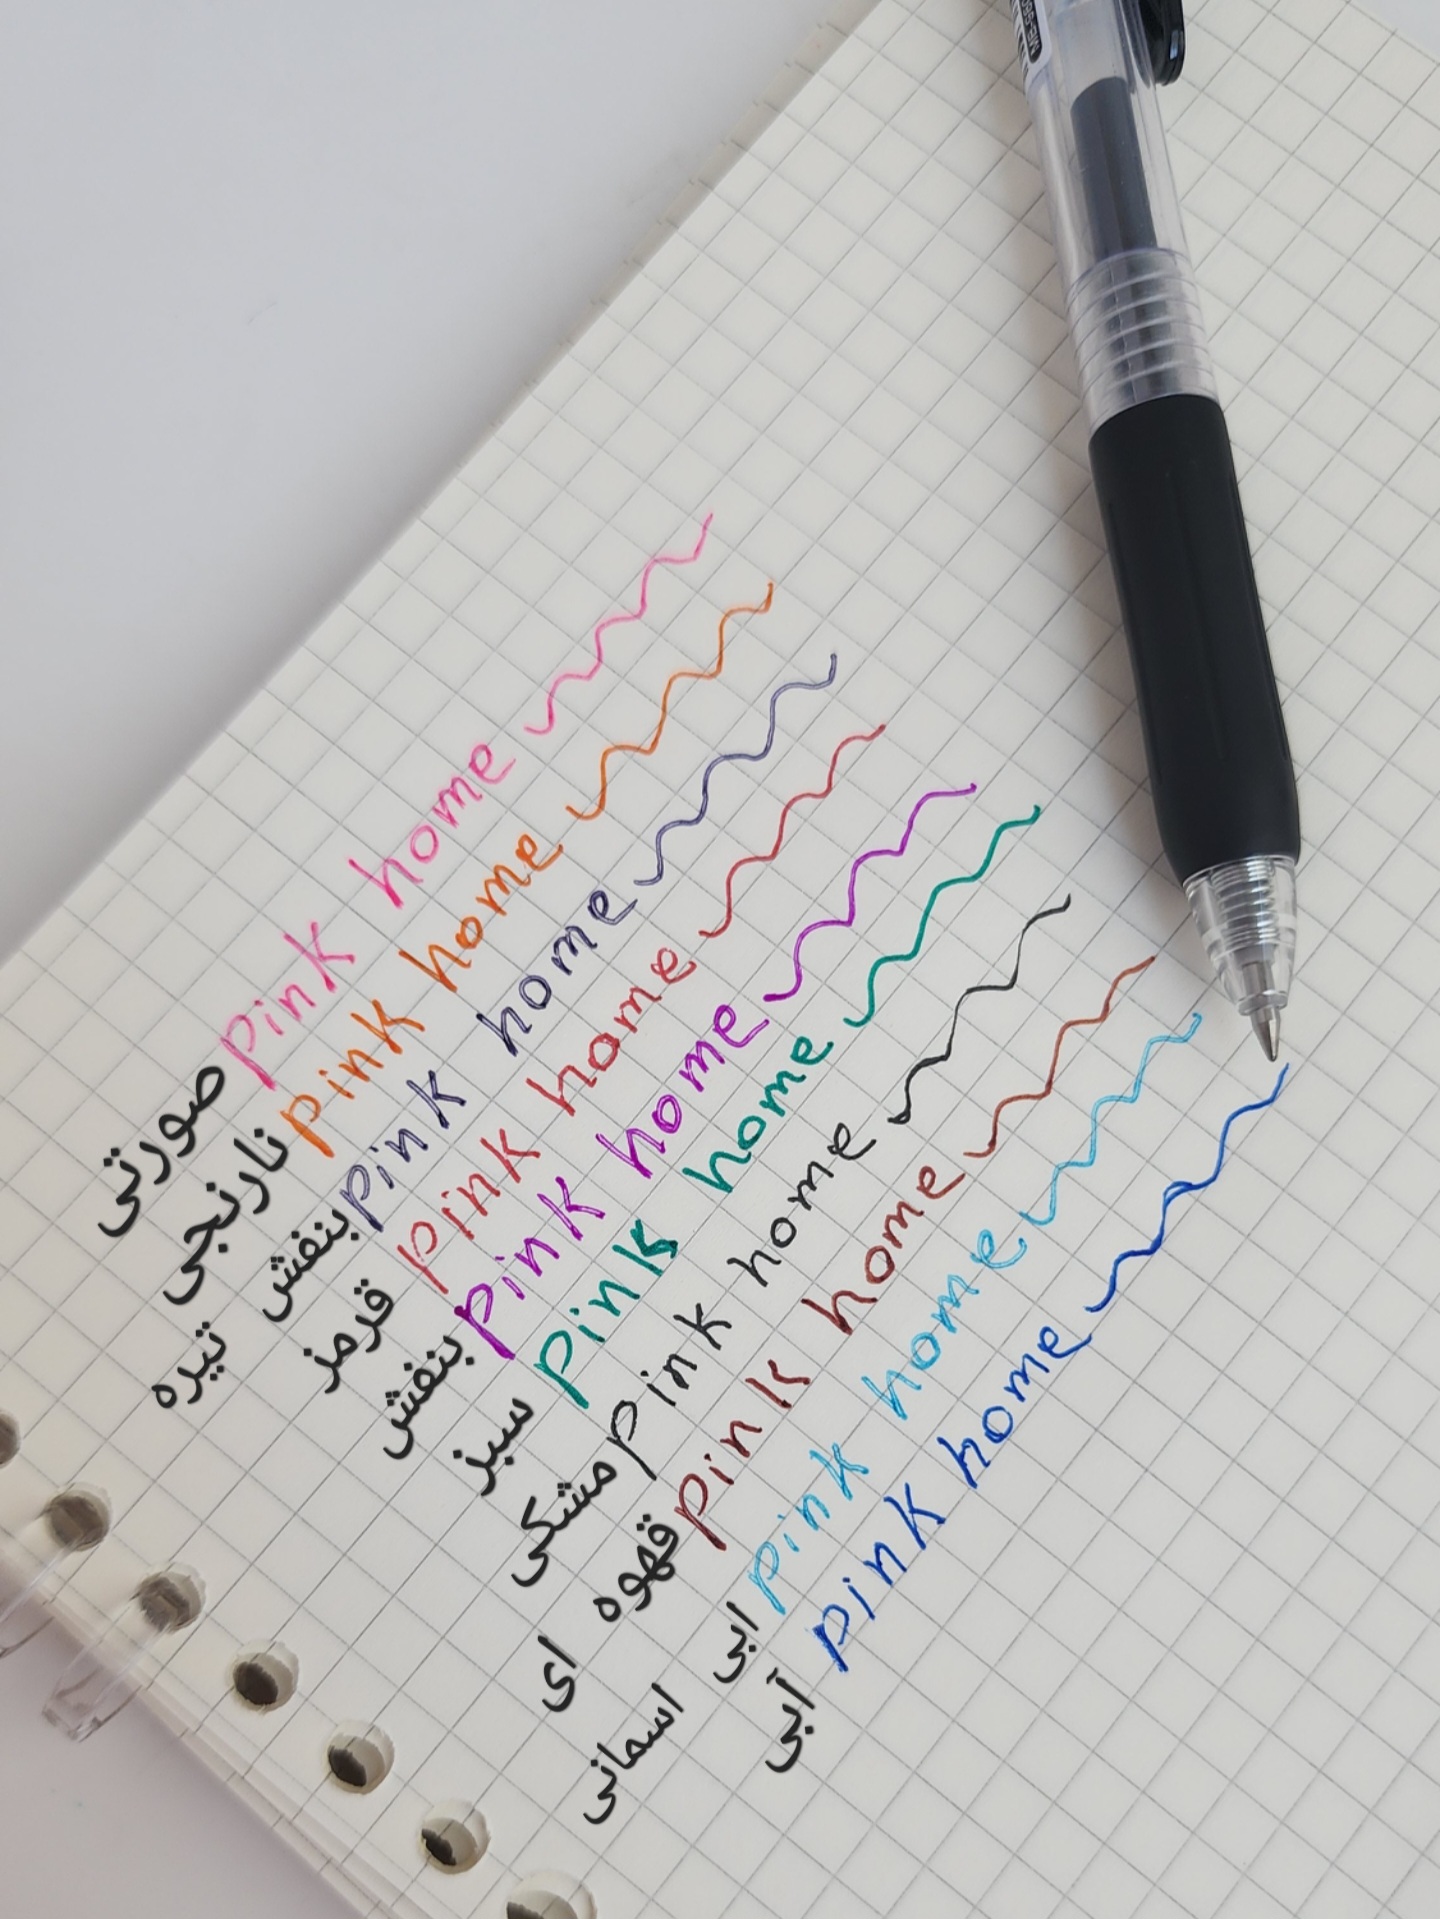 صورتی pink home
نارنجی pink home
بنفش تیره pink home
قرمز pink home
بنفش pink home
سبز pink home
مشکی pink home
قهوه ای pink home
ابی اسمانی pink home
آبی pink home